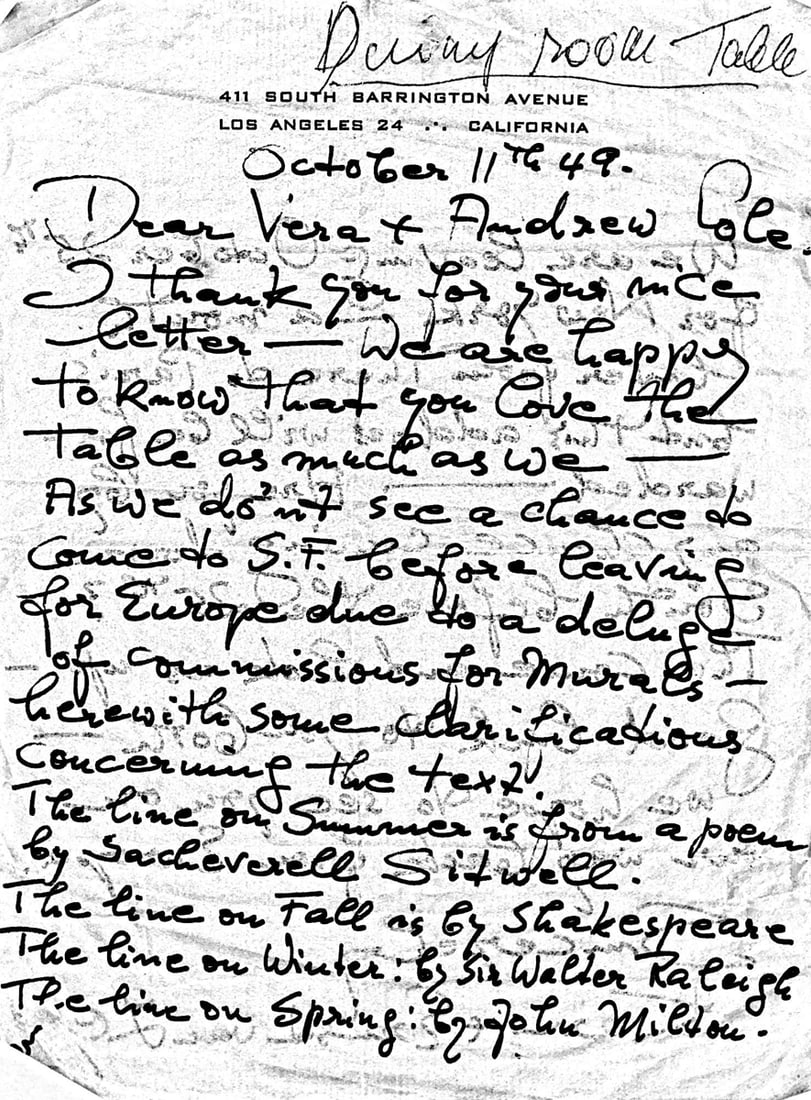 Dining room Table
411 SOUTH BARRINGTON AVENUE
LOS ANGELES 24 ∴ CALIFORNIA
October 11th 49.
Dear Vera + Andrew Cole.
I thank you for your nice
letter — We are happy
to know that you love the
table as much as we —
As we do'nt see a chance to
come to S.F. before leaving
for Europe due to a deluge
of commissions for Murals —
herewith some clarifications
concerning the text!
The line on Summer is from a poem
by Sacheverell Sitwell.
The line on Fall is by Shakespeare
The line on Winter: by Sir Walter Raleigh
The line on Spring: by John Milton.